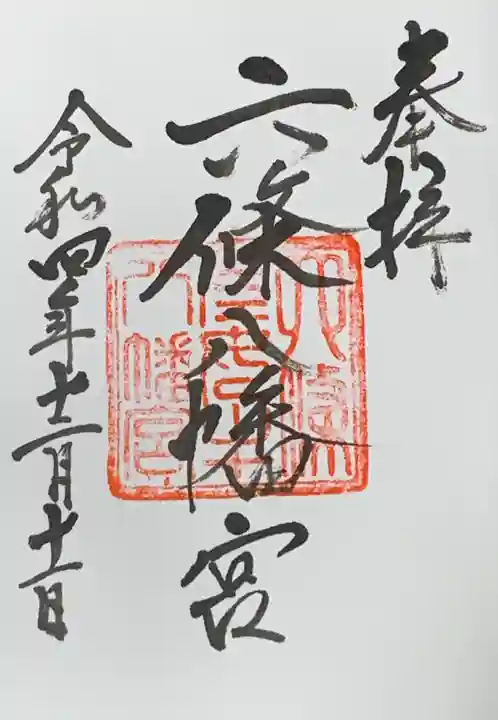 奉拝
六條八幡宮
令和四年十二月十一日
六條
八幡宮